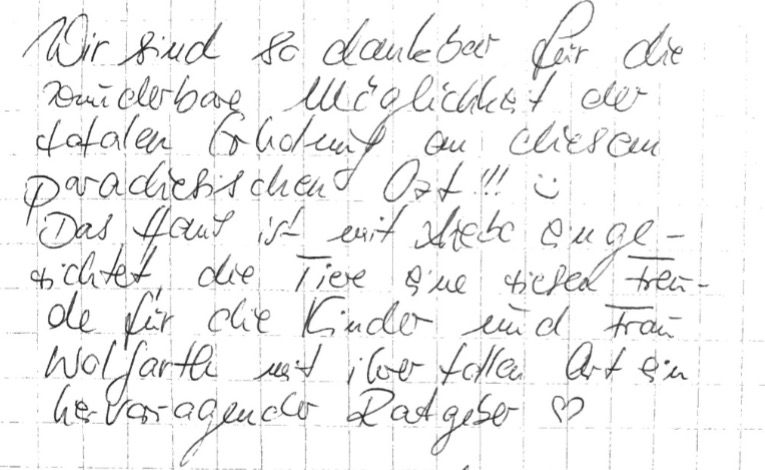 Wir sind so dankbar für die
wunderbare Möglichkeit der
totalen Erholung an diesem
paradiesischen Ort!!! ☺
Das Haus ist mit Liebe einge-
richtet, die Tiere eine riesen Freu-
de für die Kinder und Frau
Wolfarth mit ihrer tollen Art ein
hervorragender Ratgeber ♡